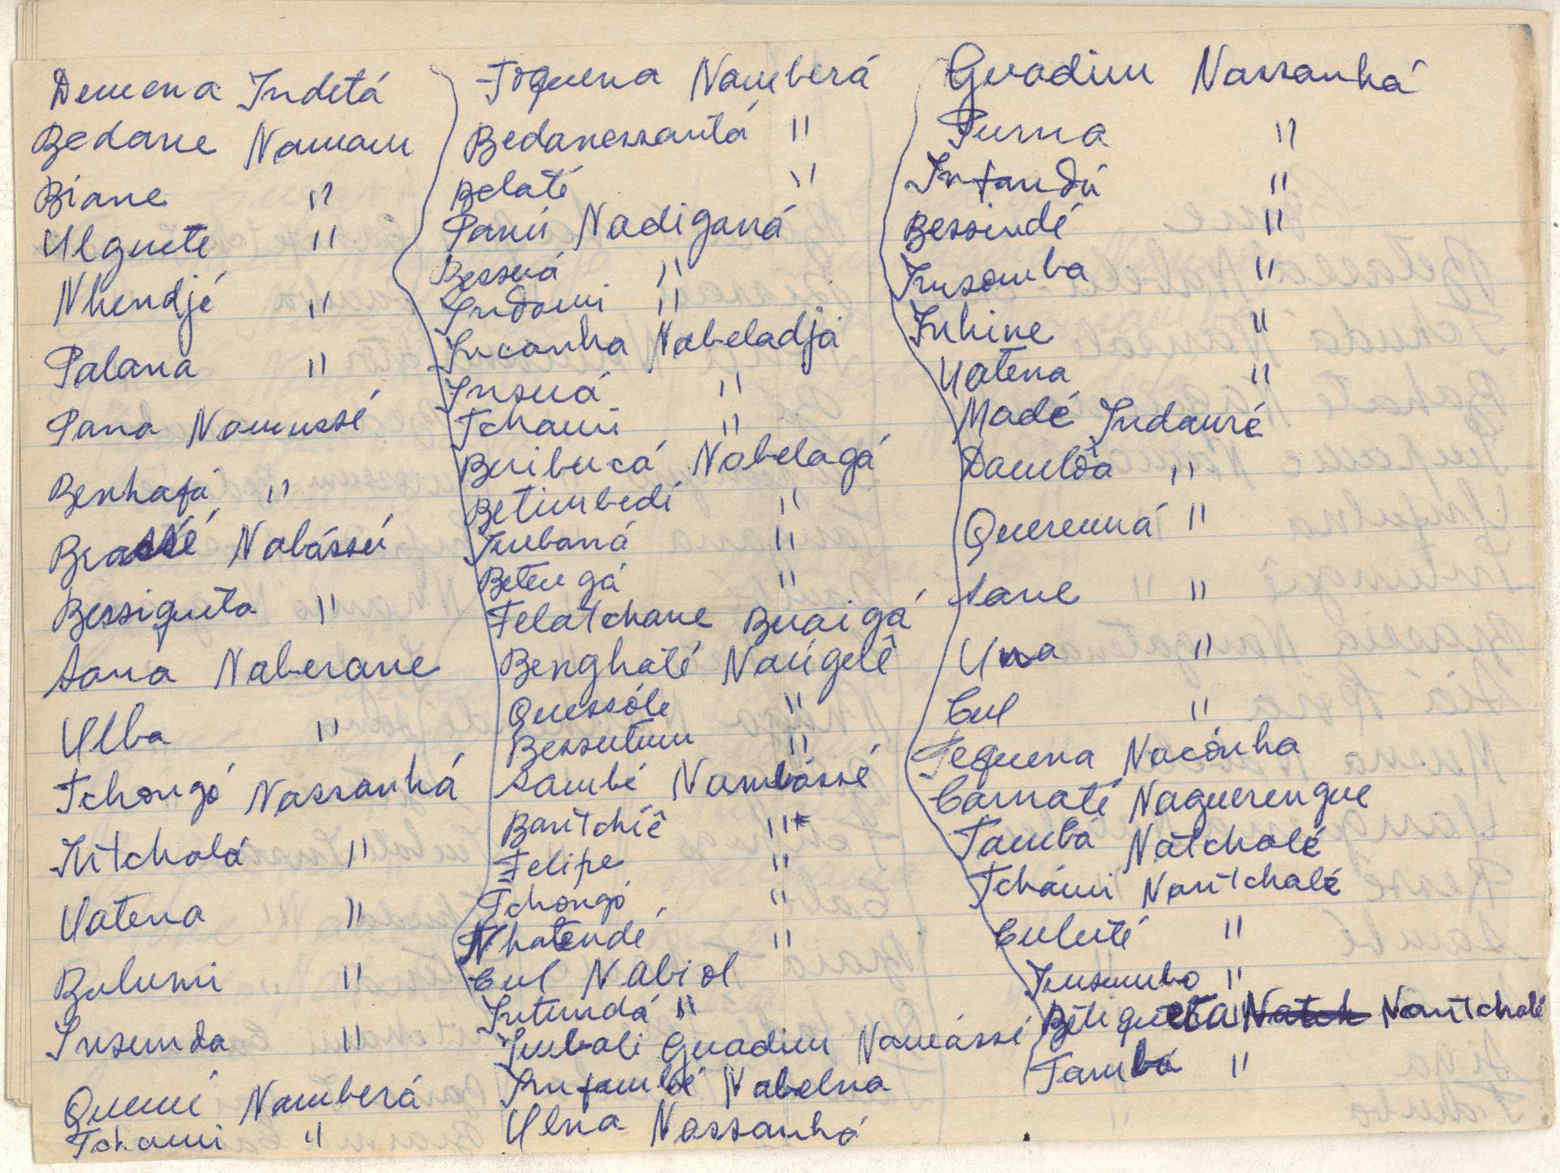 Demena Indetá
Bedane Namam
Biane "
Ulguete "
Nhendjé "
Palana "
Pana Namussé
Benhafá "
Nabássú
Bessigueta "
Sana Naberane
Ulba "
Tchongó Nassanhá
Hitcholá "
Uatena "
Bulumi "
Insunda "
Quemi Namberá
Tchami "
Toquena Namberá
Bedanessantá "
Belaté "
Panú Nadiganá
Bessuá "
Indami "
Incanha Nabeladjá
Insuá "
Tchami "
Buibucá Nabelagá
Betimbedi "
Imbaná "
Betengá "
Felatchane Buaigá
Benghaté Naúgelê
Quessóle "
Bessutum "
Sambé Nambássé
Baritchiê "
Felipe "
Tchongó "
Nhatendé "
Cul Nabiol
Intundá "
Imbali Guadim Namássé
Infambé Nabelna
Ulna Nassanhá
Guadim Nassanhá
Purna "
Infandú "
Bessindé "
Insomba "
Inhine "
Uatena "
Madé Indauré
Dambôa "
Querenná "
Sane "
Una "
Cul "
Tequena Nacónha
Carnaté Naguerengue
Tamba Natchalé
Tchámi Naritchalé
Culuté "
Insumbo "
Bitigueta Natch Naritchalé
Tamba "